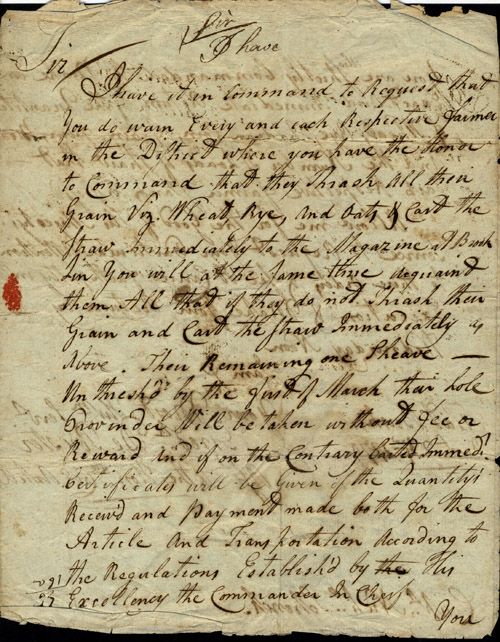 Sir
I have
Sir
I have it in Command to Request that
You do warn Every and each Respective Farmer
in the District where you have the Honor
to Command that they Thrash All their
Grain Viz. Wheat, Rye, and Oats & Cart the
Straw Immediately to the Magazine at Brook
Lin You will at the same time acquaint
them All that if they do not Thrash their
Grain and Cart the Straw Immediately as
Above. Their Remaining one Sheave —
Unthresh'd by the first of March their hole
Provinder Will be taken without fee or
Reward and if on the Contrary Carted Immed.
Certificates will be Given of the Quantitys
Receiv'd and Payment made both for the
Article And Transportation According to
the Regulations Establish'd by the His
Excellency the Commander In Chief
You